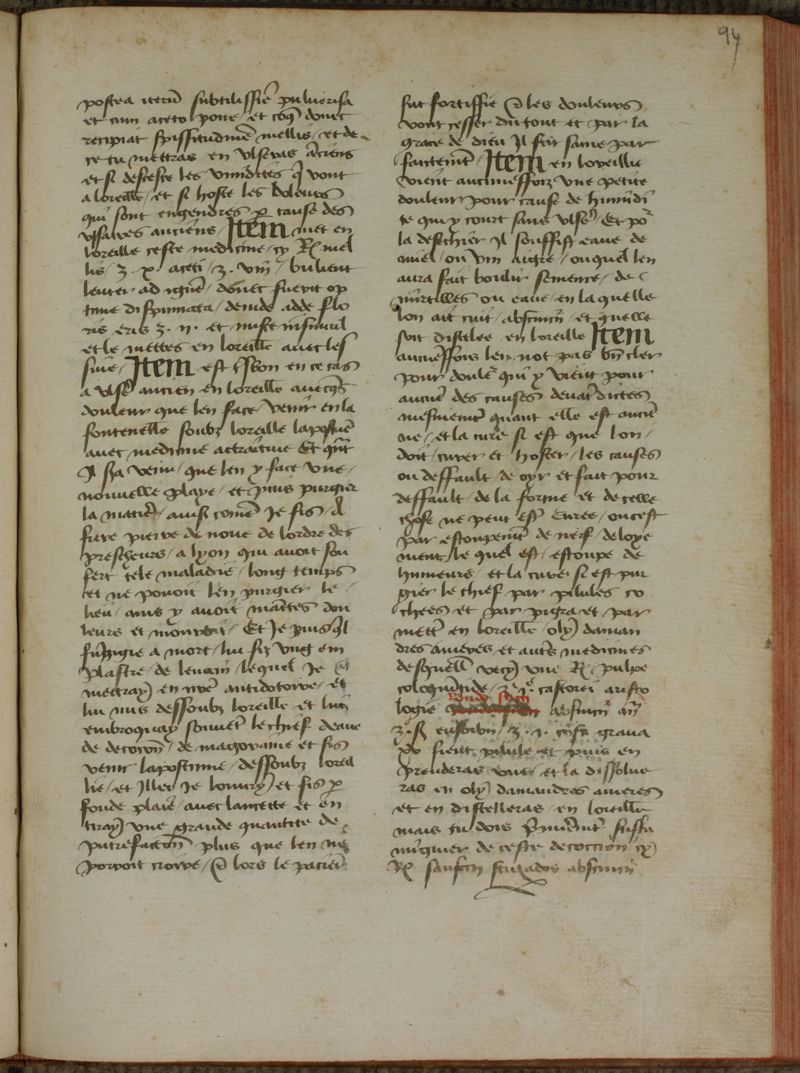 94
postea iterũ subtilissie pulverisa
et cum aceto pone / et coq̃ donec
recipiat spissitudinẽ mellis / et de
ce tu mettras en ulseras ãciens
et si deseche les umidites q̃ vont
a loreille / et si hoste les doleurs
qui sont engendres p̱ cause des
ulseres anciens / Item met en
loreille ceste medicine / cy ℞ mel
lis / ʒ. x. aceti / ʒ. viii / bulient
leniter ad ignẽ / donec fuerit op
time dispumata / deinde adde flo
ris eris ʒ. ii. et misce insimul
et le mettes en loreille avec les
sive / Item est s bon en ce cas
a ulse ancien en loreille avecq̃s
douleur que len face venir en la
fontenelle soubz loreille lapostũe
avec medicine attractive Et qñt
il sa venu / que len y face une /
nouvelle playe / et puis purgier
la matiẽ / ausi comẽ Je fis A
frere pierre de none de lordre des
prescheurs / a lyon qui avoit sou
fert tele maladie / long temps
et ne povoit len purgier le /
lieu / ains y avoit mãtes dou
leurs et
a mort / lui fiz ung em
plastre / de levain / lequel Je
mettray en nr̃e antidotoire / et
lui mis dessoubz loreille et lui
embroquay souvẽt le chief deaue
de decocõn / de magoraine et fis
venir lapostume / dessoubz loreil
lie / et illec Je louvry / et fis p̱
fonde plaie / avec lancette et en
tiray une grande quantite de
putrefaccõn plus que len ne
porroit croire / et lors le paciẽt
fut fortiffie et les douleurs
vont cesser du tout et par la
grace de dieu Il fut sane par
faictemẽt / Item en loreille
vient aucuneffoiz une petite
douleur pour cause de humidi
te qui y court sans ulsẽ / Et po
la desechier Il souffist eaue de
miel / ou vin aigre / ouquel len
aura fait boulir semence / de
mirtilles ou eaue en la quelle
lon ait cuit absincẽ / et quelle
soit distilee en loreille Item
aucuneffois len not pas bñ cler
pour doulẽ qui y vient pour
aucũe des causes devãt dictes
mesmemẽt quant elle est anciẽ
ne / et la cure si est que lon /
doit / curer et hoster / les causes
ou deffault de oyr est fait pour
deffault / de la forme et de telle
chose ne peut estr̃ curee / ou cest
par estoupemẽt de nerf / de loye
ment / le quel est / estoupe de
humeurs / et la cure si est pur
gier le chief par pilules co
chees et par pigra et par
mettr̃ en loreille oly daman
dres amerez et autrs medicines
desquell vecy une ℞ pulpe
coloquintide / ʒ castorei aristo
logie absincii
ʒ
fient pilule et puis en
prenderas une et la dissolve
ras en oly damandres ameres
et en distelleras en loreille
mais tu dois
miguier de ceste decoccion cy
℞ sansem sticados absincii